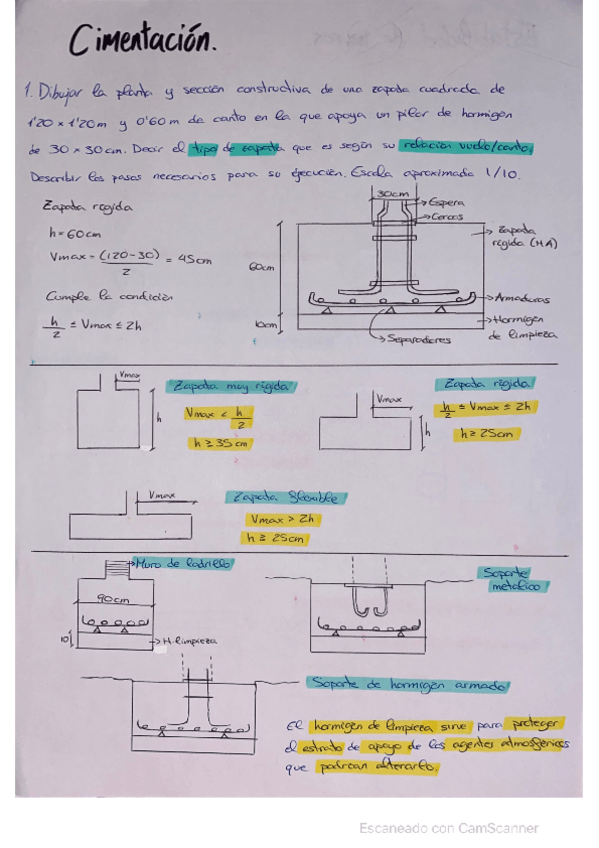 Cimentación.
1. Dibujar la planta y sección constructiva de una zapata cuadrada de
1'20 x 1'20 m y 0'60 m de canto en la que apoya un pilar de hormigón
de 30 x 30 cm. Decir el tipo de zapata que es según su relación vuelo/canto.
Describir los pasos necesarios para su ejecución. Escala aproximada 1/10.
Zapata rígida
h = 60 cm
Vmax = (120-30)/2 = 45 cm
Cumple la condición
h/2 ≤ Vmax ≤ 2h
30cm
Espera
Cercos
Zapata
rígida (HA)
60cm
Armaduras
10cm
Hormigón
de limpieza
Separadores
Vmax
h
Zapata muy rígida
Vmax < h/2
h ≥ 35 cm
Vmax
h
Zapata rígida
h/2 ≤ Vmax ≤ 2h
h ≥ 25cm
Vmax
Zapata flexible
Vmax > 2h
h ≥ 25cm
Muro de ladrillo
90cm
10
H. limpieza
Soporte
metálico
Soporte de hormigón armado
El hormigón de limpieza sirve para proteger
el estrato de apoyo de los agentes atmosféricos
que podrían alterarlo.
Escaneado con CamScanner